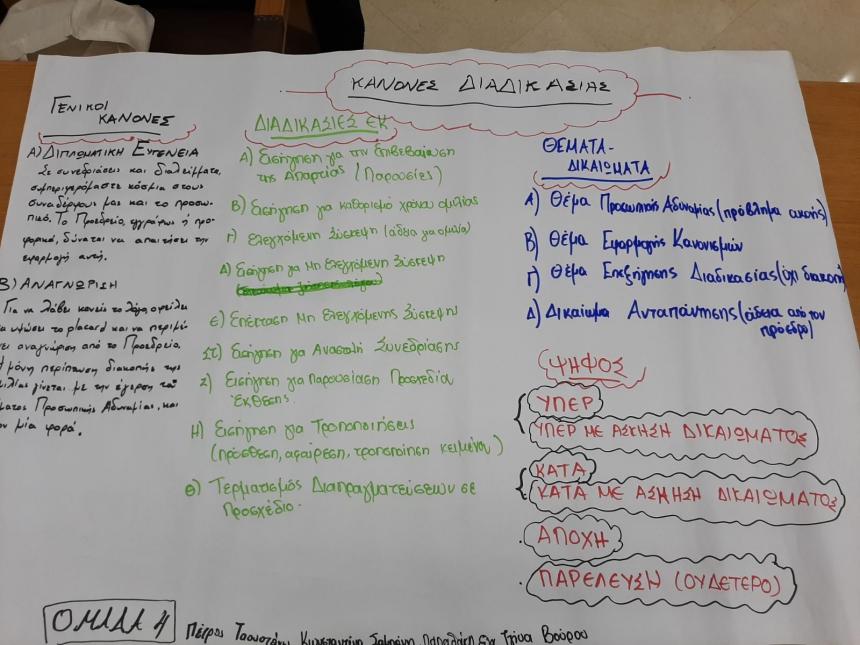 ΚΑΝΟΝΕΣ ΔΙΑΔΙΚΑΣΙΑΣ
ΓΕΝΙΚΟΙ
ΚΑΝΟΝΕΣ
Α) ΔΙΠΛΩΜΑΤΙΚΗ ΕΥΓΕΝΕΙΑ
Σε συνεδριάσεις και διαλείμματα,
συμπεριφερόμαστε κόσμια στους
συναδέρφους μας και το προσω-
πικό. Το Προεδρείο, εγγράφως ή προ-
φορικά, δύναται να απαιτήσει την
εφαρμογή αυτή.
Β) ΑΝΑΓΝΩΡΙΣΗ
Για να λάβει κανείς το λόγο, οφείλει
υψώσει το placard και να περιμέ
αναγνώριση από το Προεδρείο.
μόνη περίπτωση διακοπής της
μιλίας γίνεται με την έγερση του
ματος Προσωπικής Αδυναμίας, και
μία φορά.
ΔΙΑΔΙΚΑΣΙΕΣ ΕΚ
Α) Εισήγηση για την Επιβεβαίωση
της Απαρτίας (Παρουσίες)
Β) Εισήγηση για καθορισμό χρόνου ομιλίας
Γ) Ελεγχόμενη Σύσκεψη (άδεια για ομιλία)
Δ) Εισήγηση για Μη Ελεγχόμενη Σύσκεψη
Ε) Επέκταση Μη Ελεγχόμενης Σύσκεψης
ΣΤ) Εισήγηση για Αναστολή Συνεδρίασης
Ζ) Εισήγηση για Παρουσίαση Προσχεδία
Έκθεσης.
Η) Εισήγηση για Τροποποιήσεις
(πρόσθεση, αφαίρεση, τροποποίηση κειμένου)
Θ) Τερματισμός Διαπραγματεύσεων σε
Προσχέδιο.
ΘΕΜΑΤΑ-
ΔΙΚΑΙΩΜΑΤΑ
Α) Θέμα Προσωπικής Αδυναμίας (πρόβλημα ακοής)
Β) Θέμα Εφαρμογής Κανονισμών
Γ) Θέμα Επεξήγησης Διαδικασίας (όχι διακοπή)
Δ) Δικαίωμα Ανταπάντησης (άδεια από τον
πρόεδρο)
ΨΗΦΟΣ
ΥΠΕΡ
ΥΠΕΡ ΜΕ ΑΣΚΗΣΗ ΔΙΚΑΙΩΜΑΤΟΣ
ΚΑΤΑ
ΚΑΤΑ ΜΕ ΑΣΚΗΣΗ ΔΙΚΑΙΩΜΑΤΟΣ
ΑΠΟΧΗ
ΠΑΡΕΛΕΥΣΗ (ΟΥΔΕΤΕΡΟ)
ΟΜΑΔΑ 4
Πέτρος